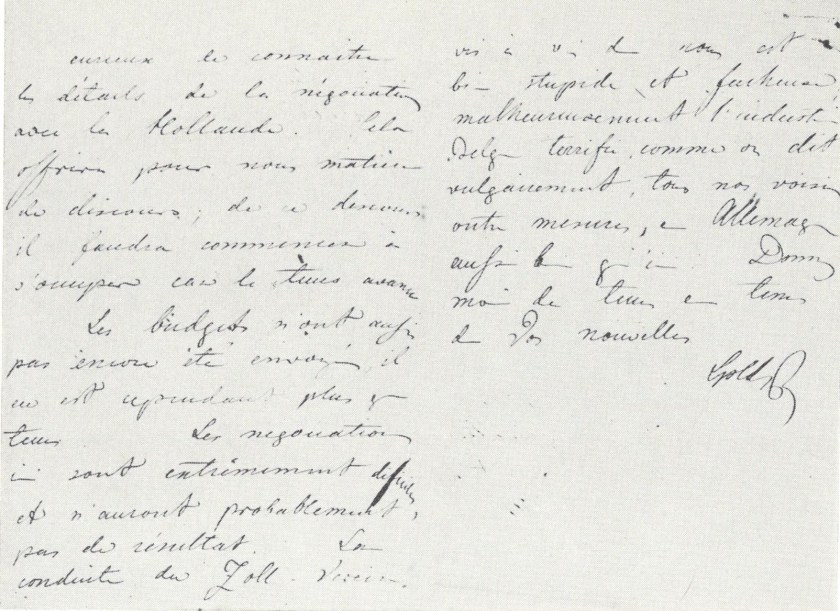 curieux de connaitre
les détails de la négociation
avec la Hollande. Cela
offrira pour nous matière
de discours; de ce discours
il faudra commencer à
s'occuper car le tems avance
Les budgets n'ont aussi
pas encore été envoyés, il
en est cependant plus que
tems Les negociations
ici sont extrêmement difficiles
et n'auront probablement
pas de résultat. La
conduite du Zoll-Verein
vis à vis de nous est
bien stupide et facheuse
malheureusement l'industrie
Belge terrifie, comme on dit
vulgairement, tous nos voisins
outre mesures, en Allemagne
aussi bien qu'ici Donnez
moi de tems en tems
de Vos nouvelles